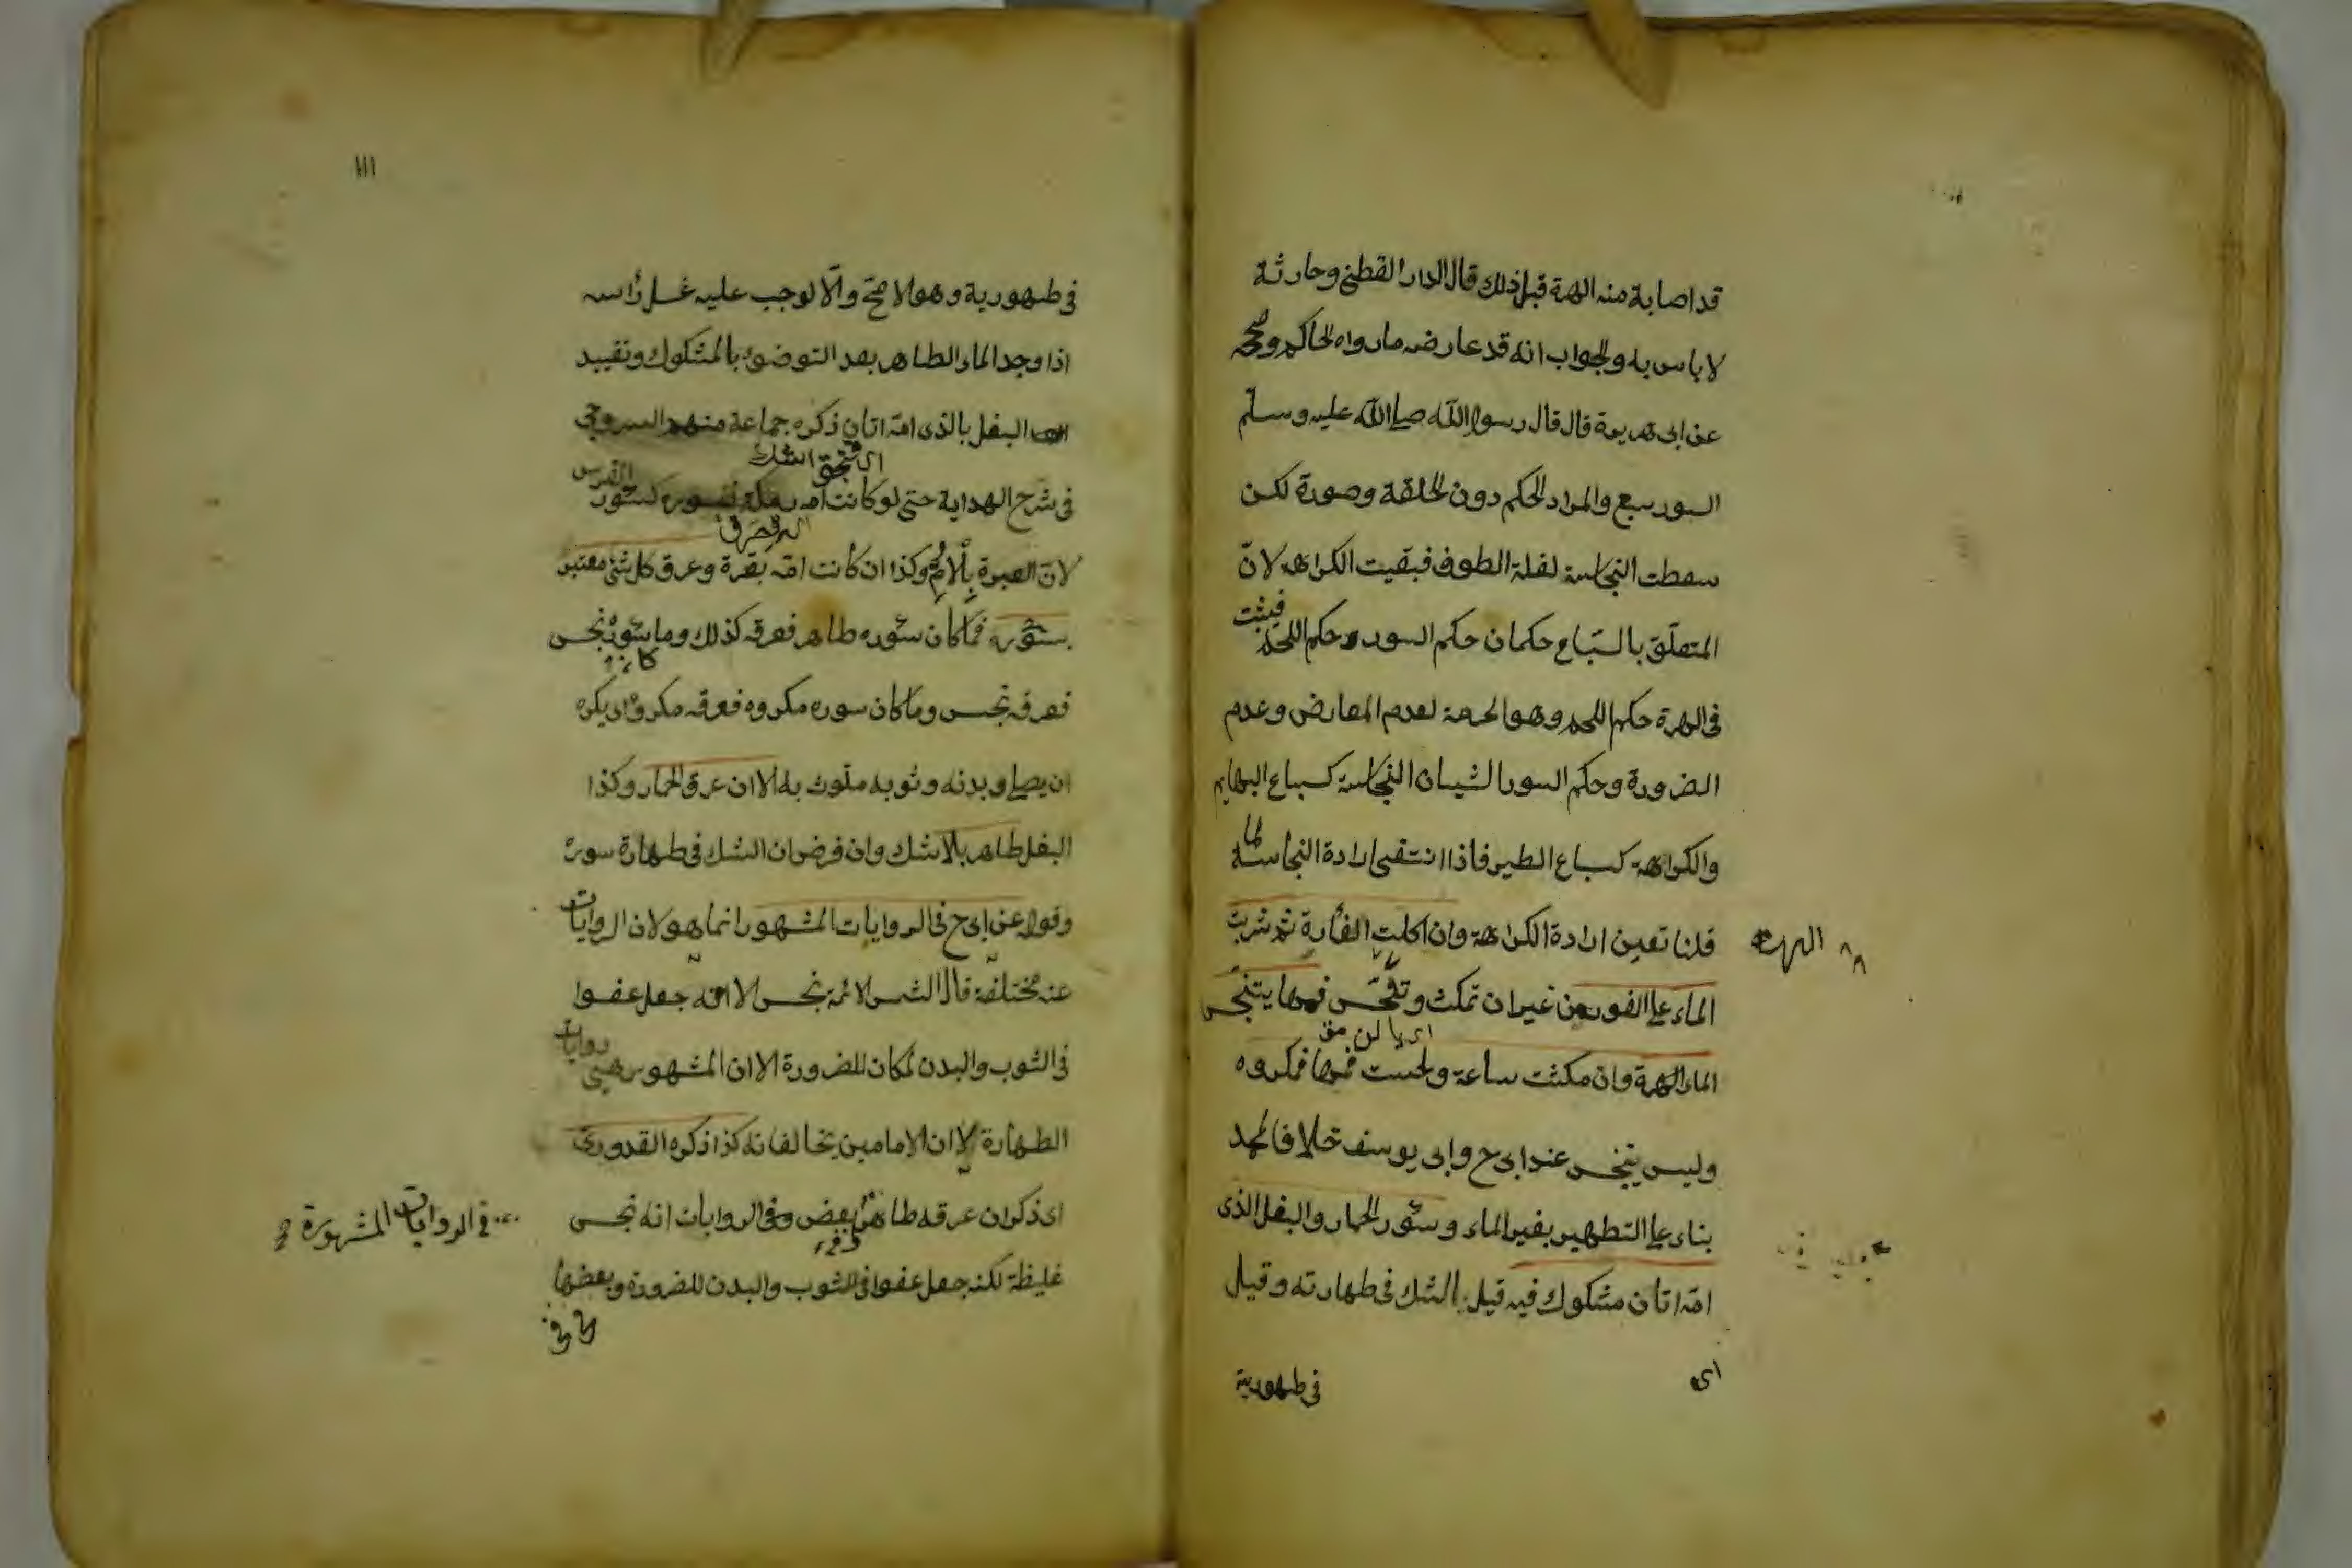 قد اصابة منه الهرة قبل ذلك قال الدار القطنى وحارثة
لا باس به والجواب انه قد عارضه ما رواه الحاكم وصححه
عن ابى هريرة قال قال رسول الله صلى الله عليه وسلم
السور سبع والمراد الحكم دون الخلقة وصورة لكن
سقطت النجاسة لعلة الطوف فبقيت الكراهه لانّ
المتعلّق بالسّباع حكمان حكم السور وحكم اللحم فيثبت
فى الهرة حكم اللحم وهو الحرمة لعدم المعارض وعدم
الضرورة وحكم السور الشيئان النجاسة كسباع البهايم
والكراهة كسباع الطير فاذا انتقى ارادة النجاسة لما
قلنا تعين ارادة الكراهة وان اكلت الفأرة ثم شربت
الهرة
الماء على الفور من غير ان تمكث وتلحس فمها يتنجس
الماء الهرة وان مكثت ساعة ولحست فمها فمكروه
وليس بنجس عند ابى ح وابى يوسف خلافا لمحمد
بناء على التطهير بغير الماء وسؤر الحمار والبغل الذى
امّه اتان مشكوك فيه قيل الشك فى طهارته وقيل
اى
فى طهورية
١١١
فى طهورية وهو الاصح والّا لوجب عليه غسل رأسه
اذا وجد الماء الطاهر بعد التوضئ بالمشكوك وتقييد
البغل بالذى امّه اتان ذكره جماعة منهم السروجى
اى تحقق الشك
فى شرح الهداية حتى لو كانت امه رمكة فسوره كسؤر الفرس
لانّ العبرة بالامّ وكذا ان كانت امّه بقرة وعرق كل شئ معتبر
بسؤره فما كان سؤره طاهر فعرقه كذلك وما سؤره نجس
كان
فعرقه نجس وما كان سوره مكروه فعرقه مكروه اى يكره
ان يصلى وبدنه وثوبه ملوث به الا ان عرق الحمار وكذا
البغل طاهر بلا شك وان فرض ان الشك فى طهارة سوره
وقوله عن ابى ح فى الروايات المشهور انما هو لان الروايات
عنه مختلفة قال الشمس الائمة نجس الا انه جعل عفوا
فى الثوب والبدن لمكان للضرورة الا ان المشهور هى روايات
الطهارة لا ان الامامين يخالفانه كذا ذكره القدورى
اى ذكر ان عرقه طاهر بعض وفى الروايات انه نجس
فى الروايات المشهورة
غليظة لكنه جعل عفوا فى الثوب والبدن للضرورة وبعضها